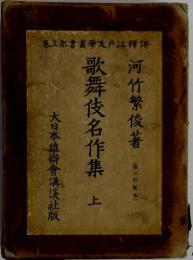 評釋江戸文學叢書第五卷
河竹繁俊著
歌舞伎名作集 上
大日本雄辯會講談社版